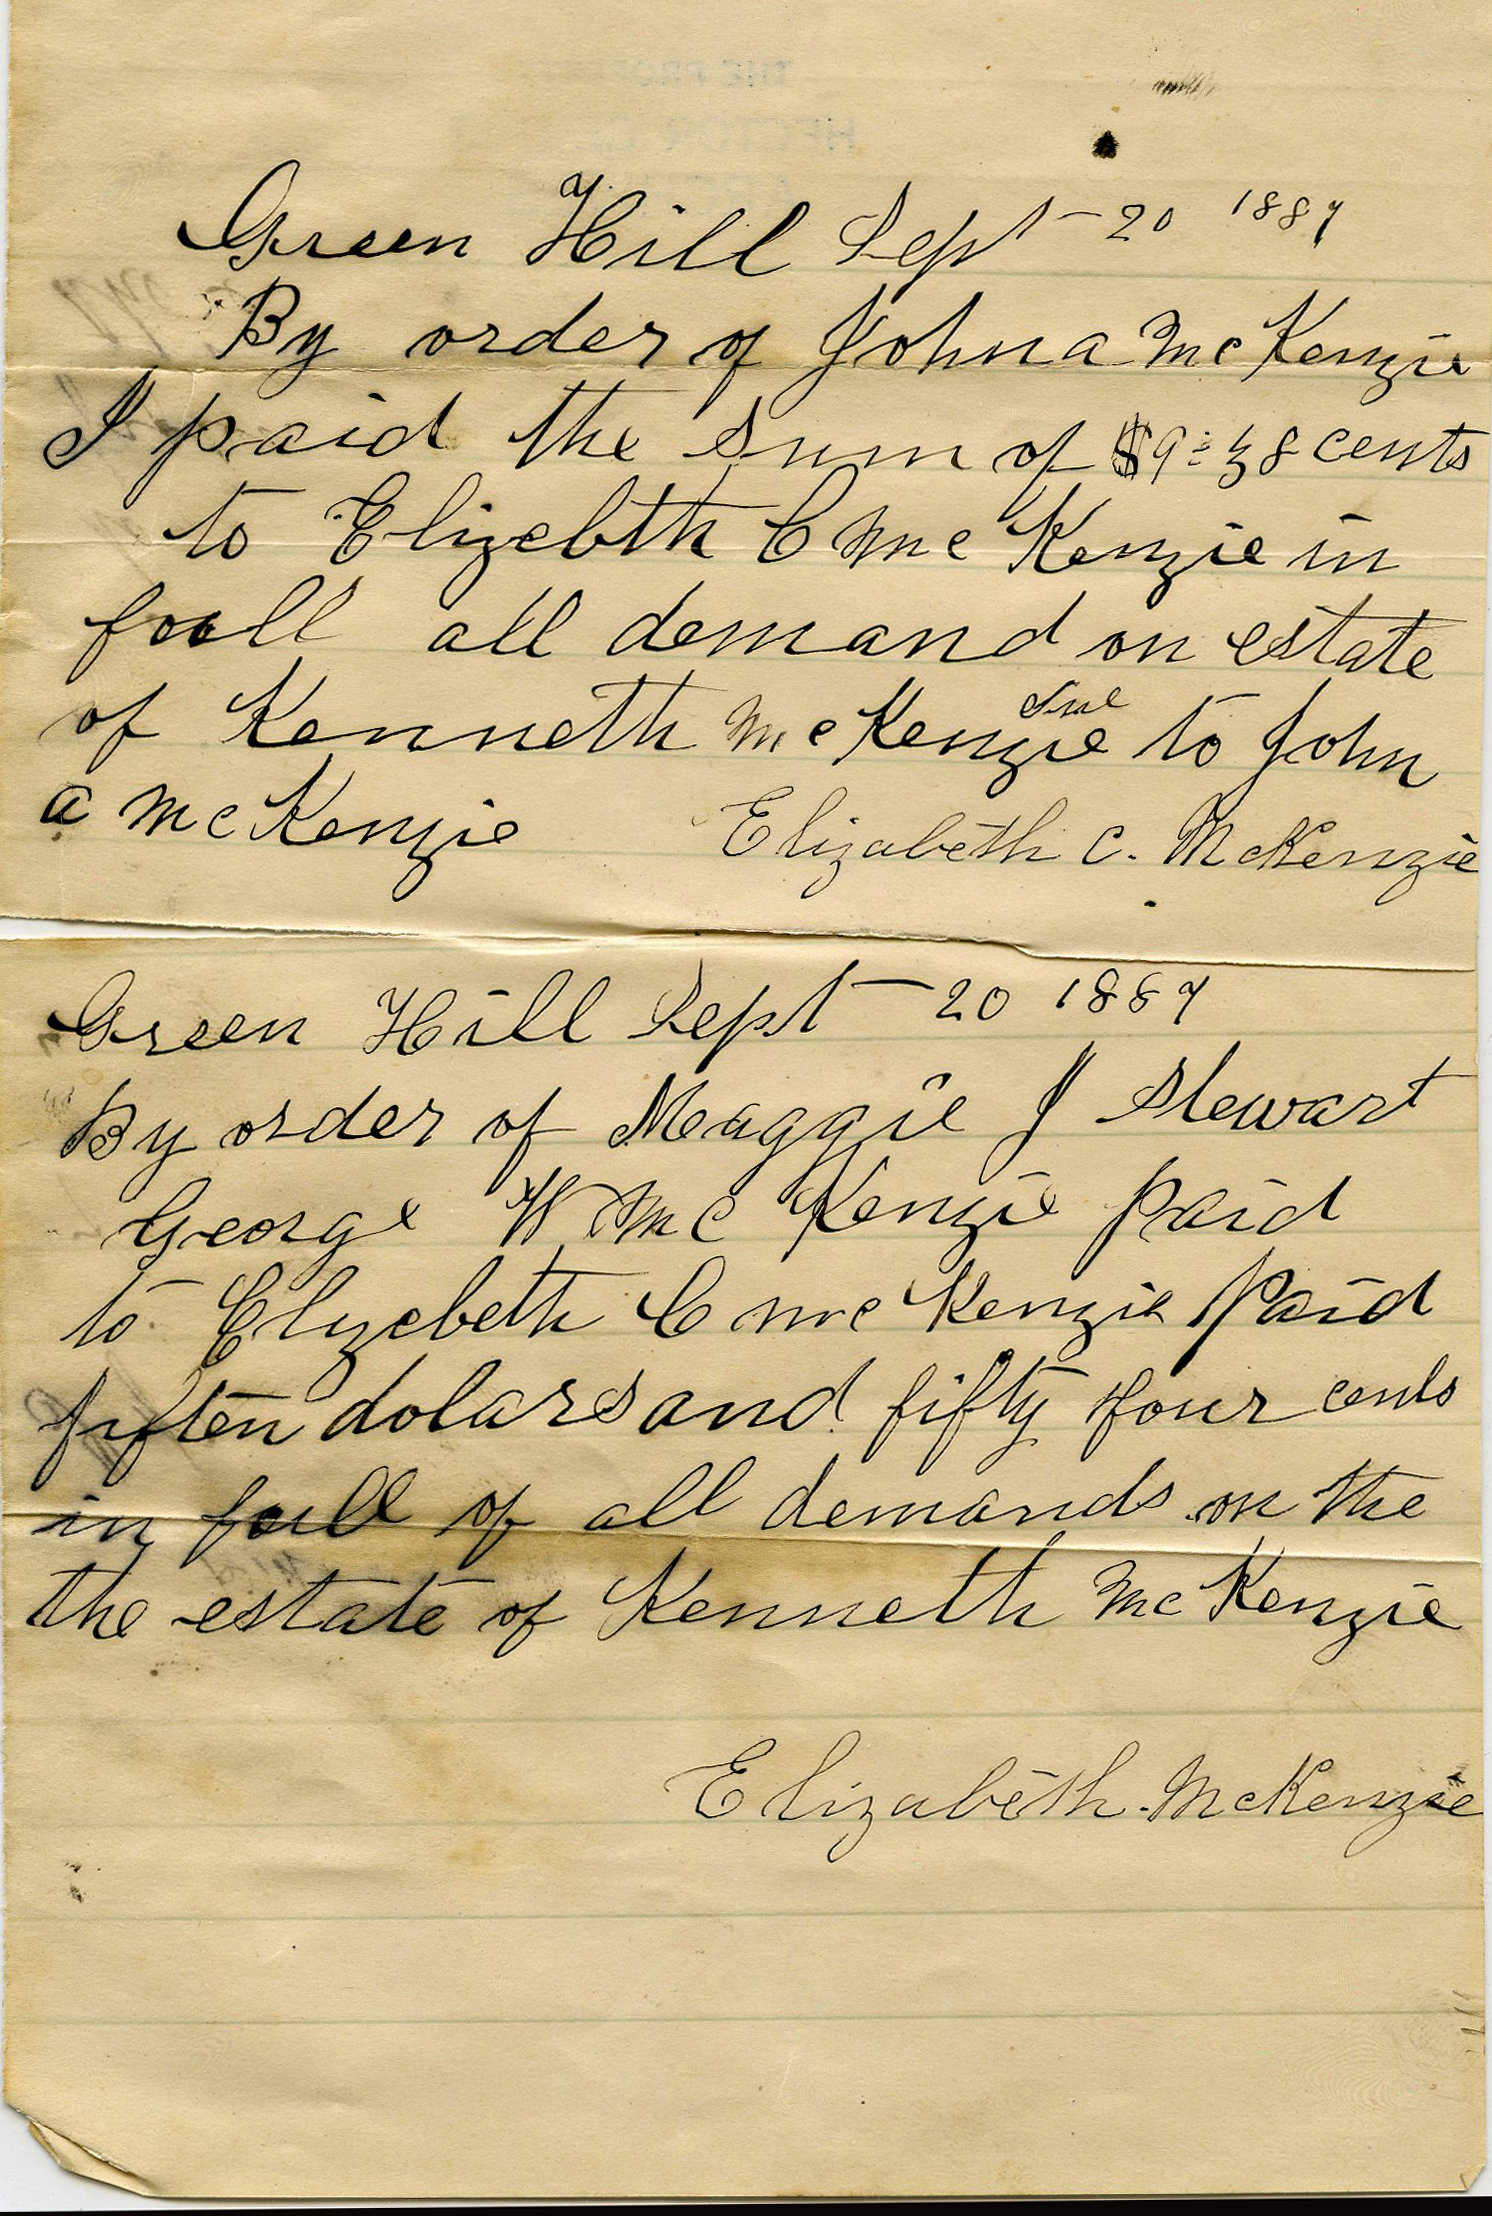 Green Hill Sept 20 1887
By order of John a McKenzie
I paid the sum of $9 = 38 cents
to Elizebth C Mc Kenzie in
full all demand on estate
due
of Kenneth McKenzie to John
a McKenzie Elizabeth C. McKenzie
Green Hill Sept 20 1887
By order of Maggie J Stewart
George W Mc Kenzie paid
to Elyzebeth C mc Kenzie Paid
fiften dolars and fifty four cents
in full of all demands on the
the estate of Kenneth McKenzie
Elizabeth McKenzie